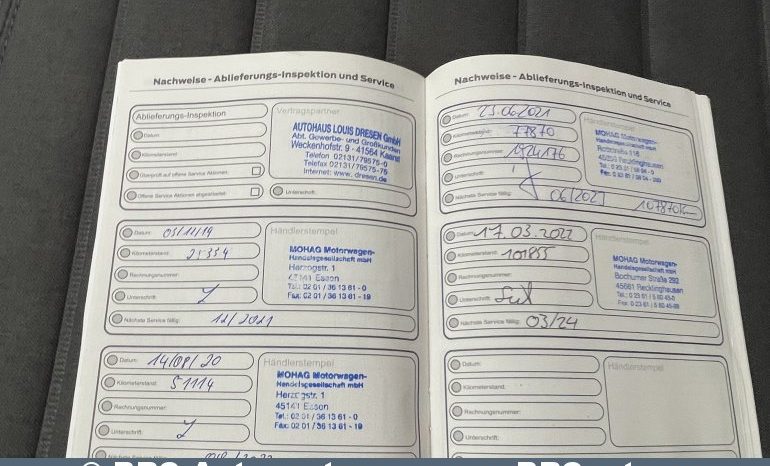 Nachweise - Ablieferungs-Inspektion und Service
Ablieferungs-Inspektion
Datum:
Kilometerstand:
Überprüft auf offene Service Aktionen:
Offene Service Aktionen abgearbeitet:
Vertragspartner
AUTOHAUS LOUIS DRESEN GmbH
Abt. Gewerbe- und Großkunden
Weckenhofstr. 9 - 41564 Kaarst
Telefon 02131/79575-0
Telefax 02131/79575-75
Internet: www.dresen.de
Unterschrift:
Datum: 05/11/19
Kilometerstand: 25354
Rechnungsnummer:
Unterschrift:
Nächste Service fällig: 11/2021
Händlerstempel
MOHAG Motorwagen-
Handelsgesellschaft mbH
Herzogstr. 1
45141 Essen
Tel.: 02 01 / 36 13 61 - 0
Fax: 02 01 / 36 13 61 - 19
Datum: 14/08/20
Kilometerstand: 51114
Rechnungsnummer:
Unterschrift:
Nächste Service fällig:
Händlerstempel
MOHAG Motorwagen-
Handelsgesellschaft mbH
Herzogstr. 1
45141 Essen
Tel.: 02 01 / 36 13 61 - 0
Fax: 02 01 / 36 13 61 - 19
Nachweise - Ablieferungs-Inspektion und Service
Datum: 23.06.2021
Kilometerstand: 77870
Rechnungsnummer: 1924176
Unterschrift:
Nächste Service fällig: 06/2023 107870
Händlerstempel
MOHAG Motorwagen-
Handelsgesellschaft mbH
45659 Recklinghausen
Datum: 17.03.2022
Kilometerstand: 101855
Rechnungsnummer:
Unterschrift:
Nächste Service fällig: 03/24
Händlerstempel
MOHAG Motorwagen-
Handelsgesellschaft mbH
Bochumer Straße 292
45661 Recklinghausen
Datum:
Kilometerstand:
Rechnungsnummer:
Unterschrift:
Händlerstempel